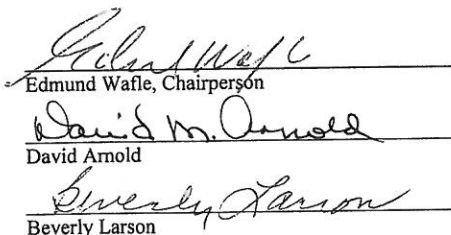 Edmund Wafle
Edmund Wafle, Chairperson
David M. Arnold
David Arnold
Beverly Larson
Beverly Larson